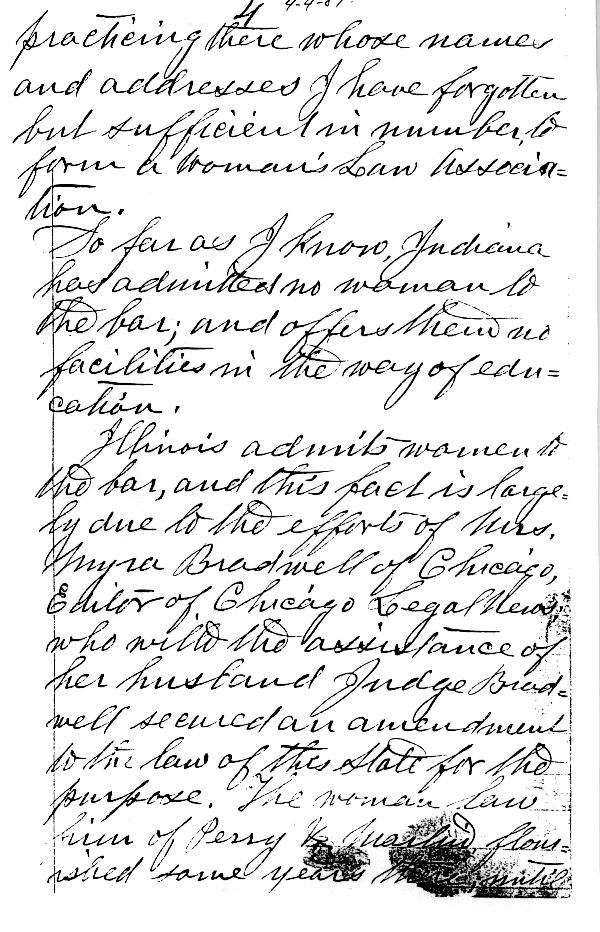 4 4-4-87.
practicing there whose names
and addresses I have forgotten
but sufficient in number, to
form a Woman's Law Associa=
tion.
So far as I know, Indiana
has admitted no woman to
the bar; and offers them no
facilities in the way of edu=
cation.
Illinois admits women to
the bar, and this fact is large=
ly due to the efforts of Mrs.
Myra Bradwell of Chicago,
Editor of Chicago Legal News,
who with the assistance of
her husband Judge Brad=
well secured an amendment
to the law of this State for the
purpose. The woman law
firm of Perry & Martin, flour=
ished some years there, until